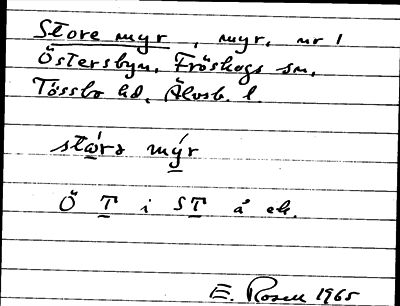 Store myr, myr, nr 1
Östersbyn, Fröskogs sn,
Tössbo hd, Älvsb. l.
stωrə mýr
Ö T i ST å ek.
E. Rosell 1965